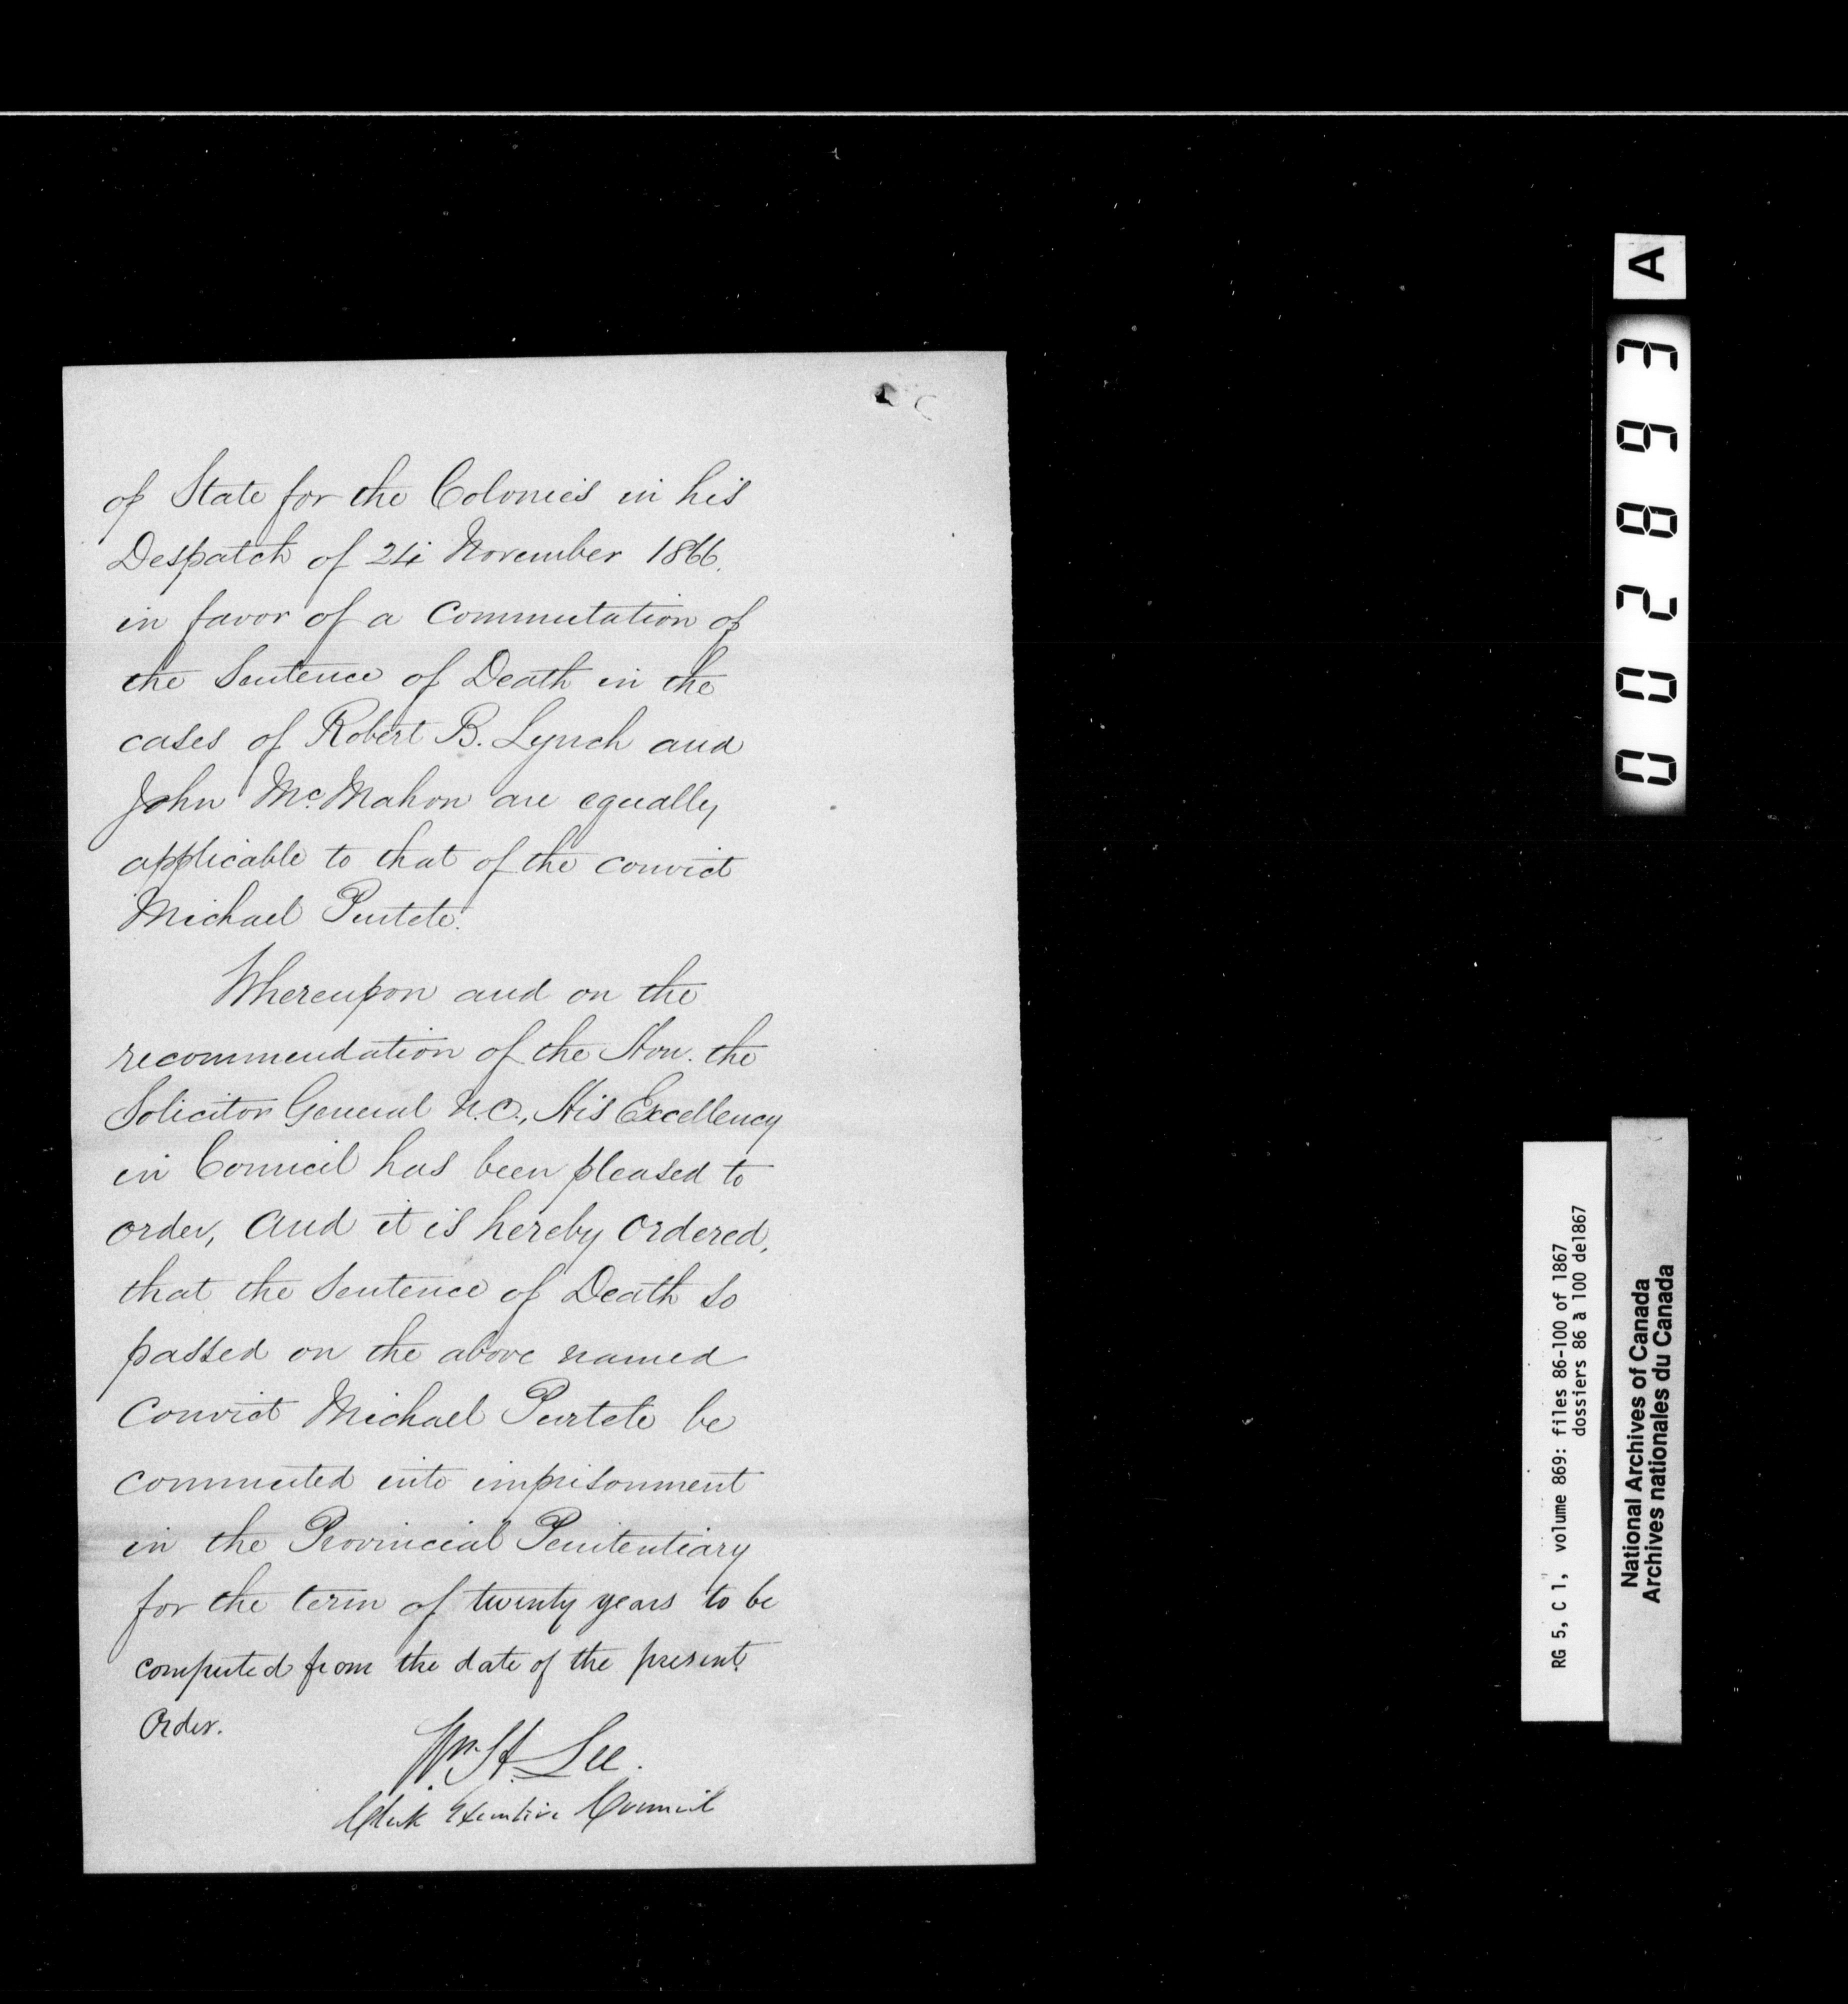 of State for the Colonies in his
Despatch of 24 November 1866.
in favor of a commutation of
the Sentence of Death in the
cases of Robert B. Lynch and
John McMahon are equally
applicable to that of the convict
Michael Purtete.
Whereupon and on the
recommendation of the Hon. the
Solicitor General U.C., His Excellency
in Council has been pleased to
order, and it is hereby ordered,
that the Sentence of Death so
passed on the above named
Convict Michael Purtete be
commuted into imprisonment
in the Provincial Penitentiary
for the term of twenty years to be
computed from the date of the present
Order.
Wm. H. Lee.
Clerk Executive Council
A
002863
RG 5, C 1, volume 869: files 86-100 of 1867
dossiers 86 à 100 de1867
National Archives of Canada
Archives nationales du Canada